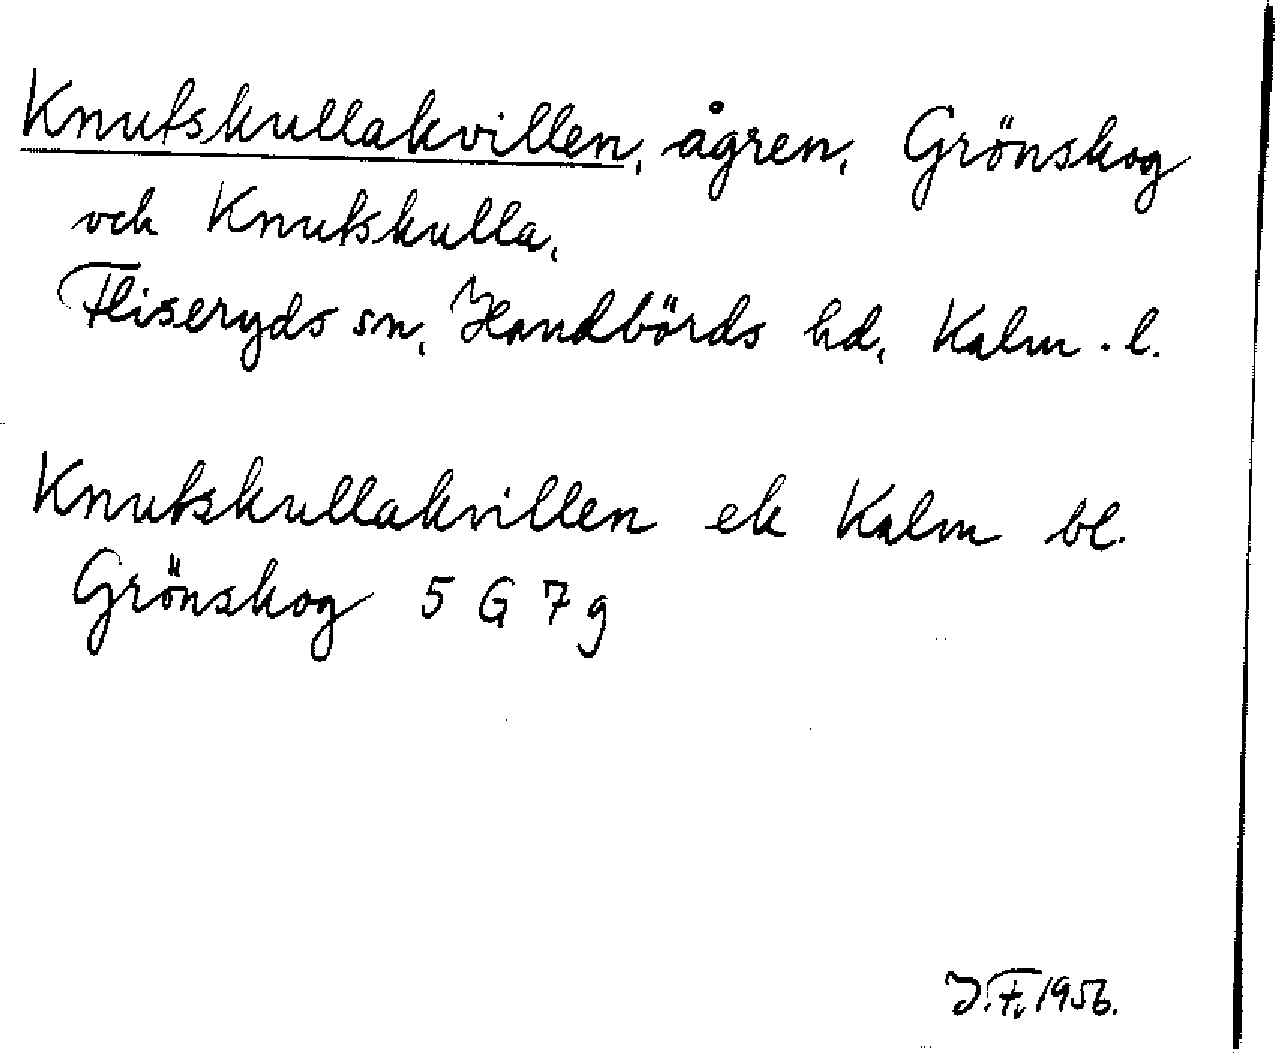 Knutskullakvillen, ågren, Grönskog
och Knutskulla,
Fliseryds sn, Handbörds hd, Kalm. l.
Knutskullakvillen ek Kalm bl.
Grönskog 5 G 7 g
J.F. 1956.